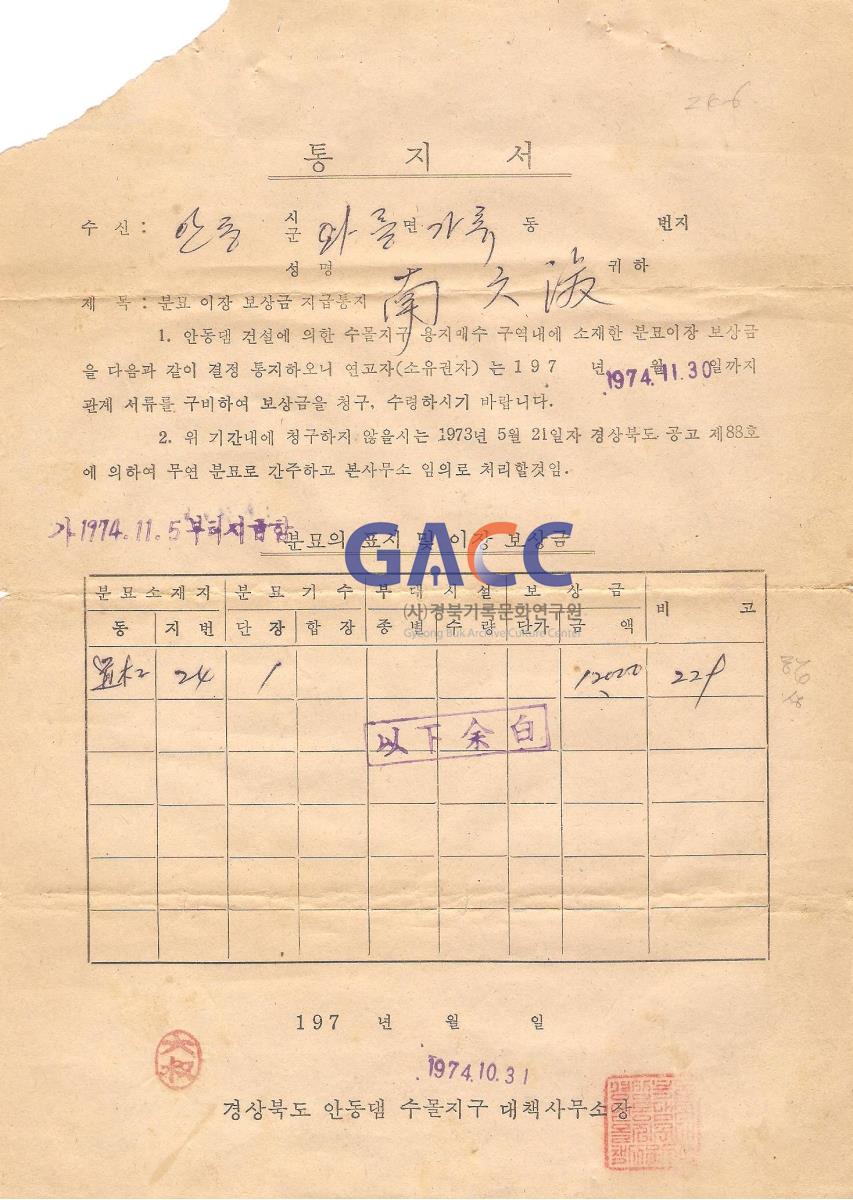 통 지 서
수 신 : 안동 시 군 와룡 면 가류 동 번지
성 명 南 文 귀 하
제 목 : 분묘 이장 보상금 지급통지
1. 안동댐 건설에 의한 수몰지구 용지매수 구역내에 소재한 분묘이장 보상금
을 다음과 같이 결정 통지하오니 연고자(소유권자) 는 197 년 월 일까지
1974.11.30
관계 서류를 구비하여 보상금을 청구, 수령하시기 바랍니다.
2. 위 기간내에 청구하지 않을시는 1973년 5월 21일자 경상북도 공고 제88호
에 의하여 무연 분묘로 간주하고 본사무소 임의로 처리할것임.
가. 1974. 11. 5 부터 지급함
분묘의 표시 및 이장 보상금
GACC
(사)경북기록문화연구원
Gyeong Buk Archive Culture Center
분묘소재지 분묘기수 부대시설 보상금 비 고
동 지번 단장 합장 종별 수량 단가 금액
24 1 12000
以下余白
197 년 월 일
1974.10.31
경상북도 안동댐 수몰지구 대책사무소장